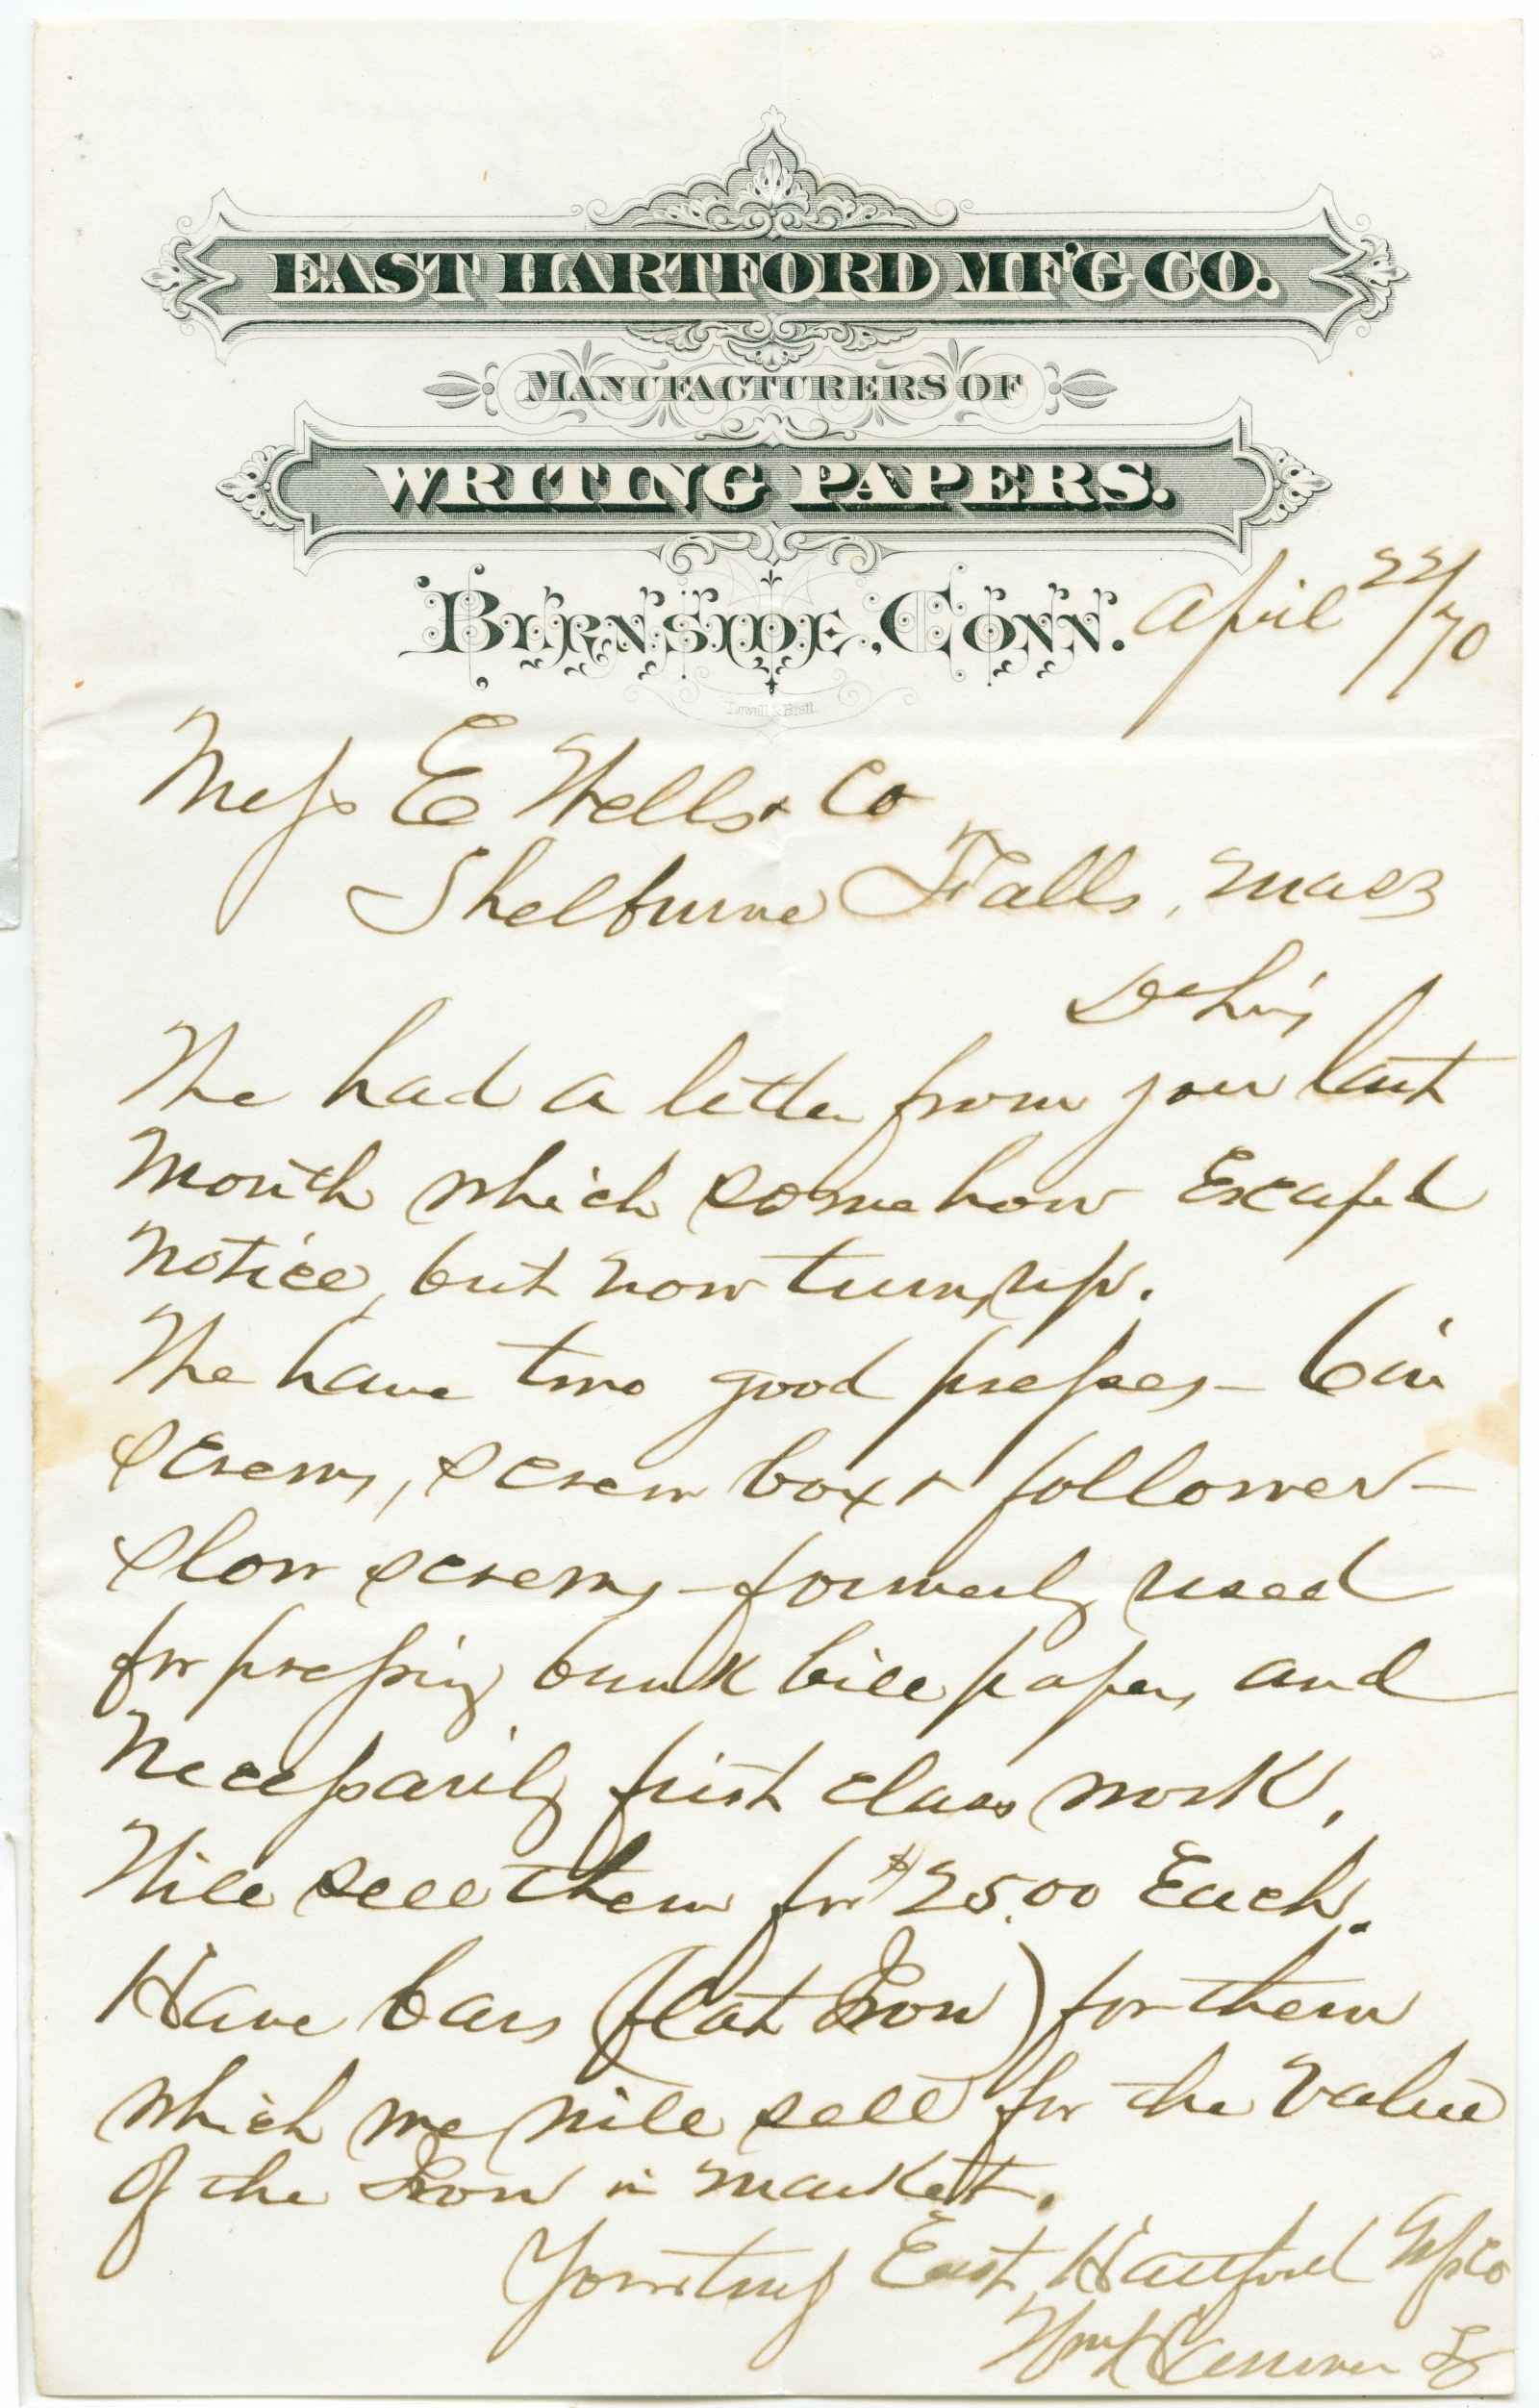 EAST HARTFORD MF'G CO.
MANUFACTURERS OF
WRITING PAPERS.
BURNSIDE, CONN. April 22/70
Lowell & Brett
Mess E Wells & Co
Shelburne Falls, Mass
D Sirs
We had a letter from you last
Month which somehow Escaped
Notice, but now turns up.
We have two good presses – 6 in
screws, screw box & follower –
slow screws – formerly used
for pressing bank bill paper, and
Necessarily first class work.
Will sell them for $25.00 Each.
Have bars (flat Iron) for them
which we will sell for the Value
of the Iron in market.
Yours truly East Hartford Mfg Co
Wm